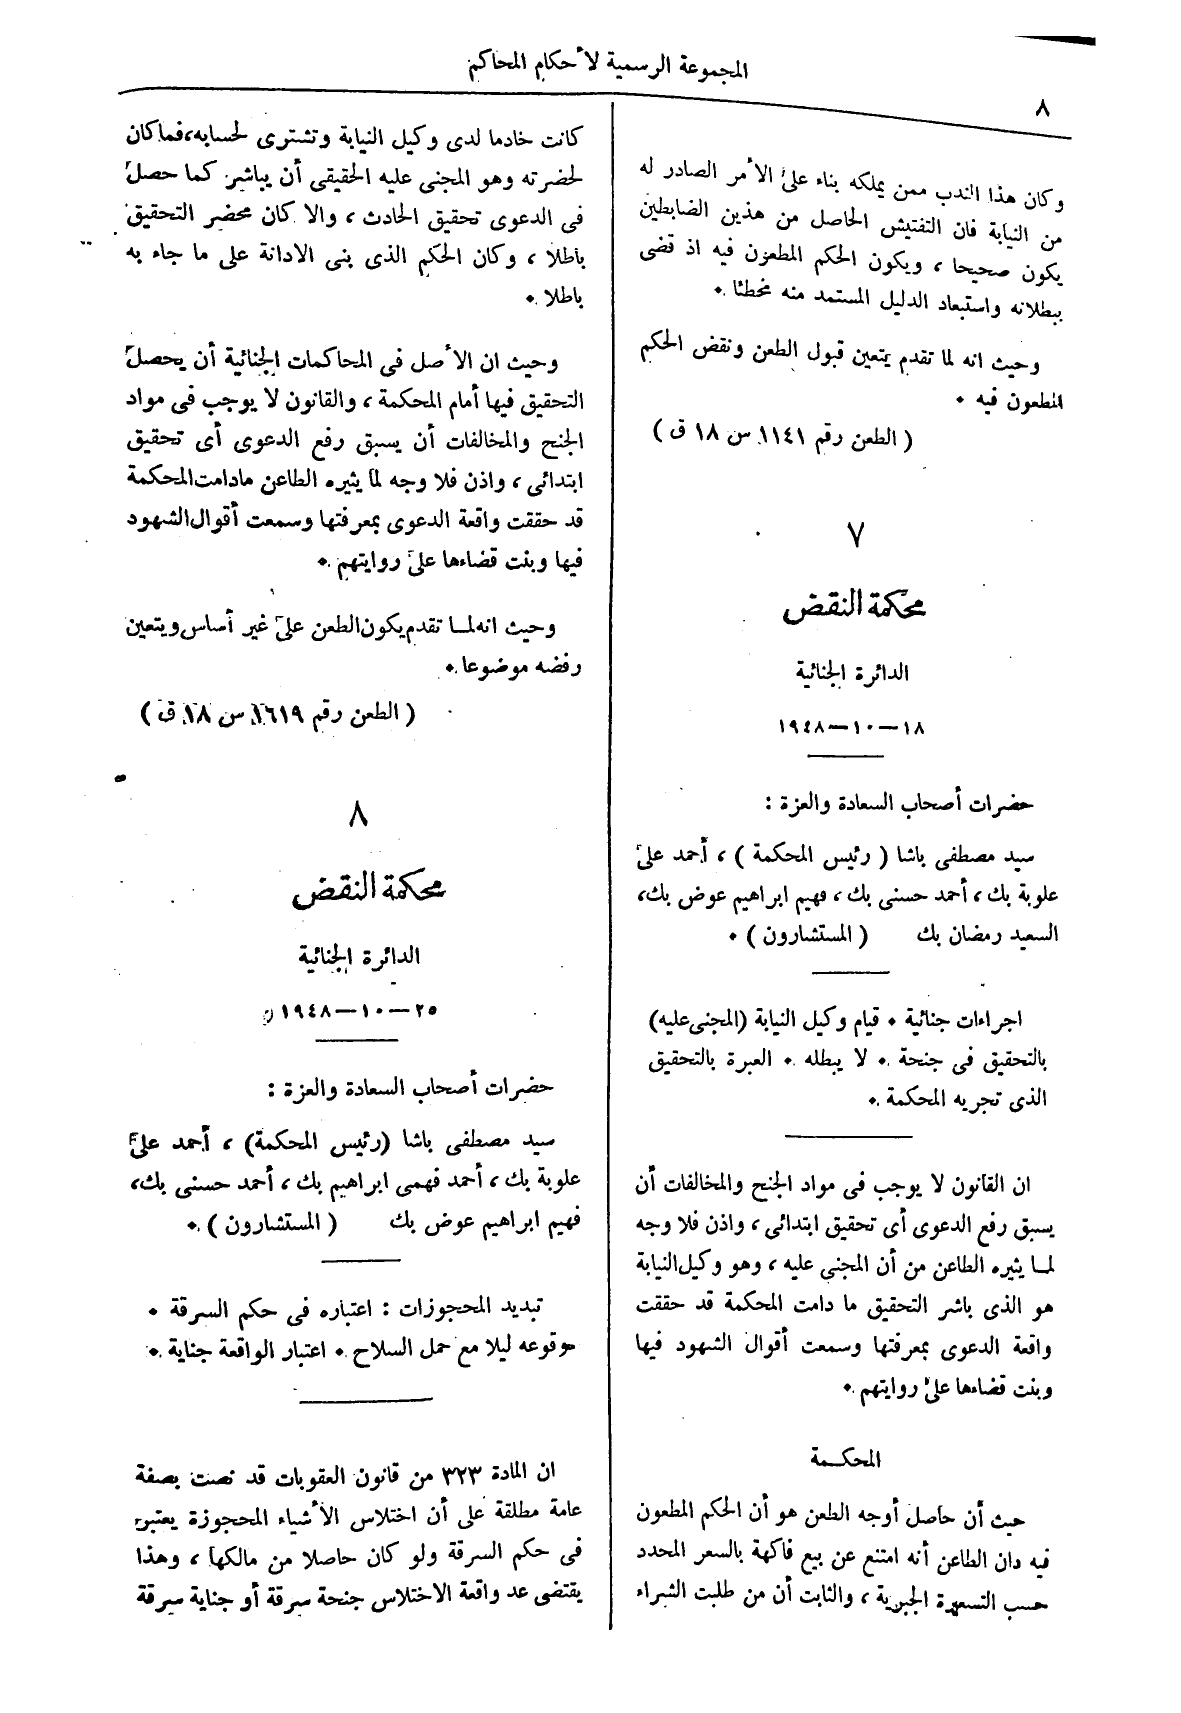 المجموعة الرسمية لأحكام المحاكم
٨
وكان هذا الندب ممن يملكه بناء على الأمر الصادر له
من النيابة فان التفتيش الحاصل من هذين الضابطين
يكون صحيحا ، ويكون الحكم المطعون فيه اذ قضى
ببطلانه واستبعاد الدليل المستمد منه مخطئا .
وحيث انه لما تقدم يتعين قبول الطعن ونقض الحكم
المطعون فيه .
( الطعن رقم ١١٤١ س ١٨ ق )
٧
محكمة النقض
الدائرة الجنائية
١٨ – ١٠ – ١٩٤٨
حضرات أصحاب السعادة والعزة :
سيد مصطفى باشا ( رئيس المحكمة ) ، أحمد على
علوبة بك ، أحمد حسنى بك ، فهيم ابراهيم عوض بك،
السعيد رمضان بك ( المستشارون ) .
اجراءات جنائية . قيام وكيل النيابة (المجنى عليه)
بالتحقيق فى جنحة . لا يبطله . العبرة بالتحقيق
الذى تجريه المحكمة .
ان القانون لا يوجب فى مواد الجنح والمخالفات أن
يسبق رفع الدعوى أى تحقيق ابتدائى ، واذن فلا وجه
لما يثيره الطاعن من أن المجنى عليه ، وهو وكيل النيابة
هو الذى باشر التحقيق ما دامت المحكمة قد حققت
واقعة الدعوى بمعرفتها وسمعت أقوال الشهود فيها
وبنت قضاءها على روايتهم .
المحكمة
حيث أن حاصل أوجه الطعن هو أن الحكم المطعون
فيه دان الطاعن أنه امتنع عن بيع فاكهة بالسعر المحدد
حسب التسعيرة الجبرية ، والثابت أن من طلبت الشراء
كانت خادما لدى وكيل النيابة وتشترى لحسابه، فما كان
لحضرته وهو المجنى عليه الحقيقى أن يباشر كما حصل
فى الدعوى تحقيق الحادث ، والا كان محضر التحقيق
باطلا ، وكان الحكم الذى بنى الادانة على ما جاء به
باطلا .
وحيث ان الأصل فى المحاكمات الجنائية أن يحصل
التحقيق فيها أمام المحكمة ، والقانون لا يوجب فى مواد
الجنح والمخالفات أن يسبق رفع الدعوى أى تحقيق
ابتدائى ، واذن فلا وجه لما يثيره الطاعن مادامت المحكمة
قد حققت واقعة الدعوى بمعرفتها وسمعت أقوال الشهود
فيها وبنت قضاءها على روايتهم .
وحيث انه لما تقدم يكون الطعن على غير أساس ويتعين
رفضه موضوعا .
( الطعن رقم ١٦١٩ س ١٨ ق )
٨
محكمة النقض
الدائرة الجنائية
٢٥ – ١٠ – ١٩٤٨
حضرات أصحاب السعادة والعزة :
سيد مصطفى باشا (رئيس المحكمة) ، أحمد على
علوبة بك ، أحمد فهمى ابراهيم بك ، أحمد حسنى بك،
فهيم ابراهيم عوض بك ( المستشارون ) .
تبديد المحجوزات : اعتباره فى حكم السرقة .
وقوعه ليلا مع حمل السلاح . اعتبار الواقعة جناية .
ان المادة ٣٢٣ من قانون العقوبات قد نصت بصفة
عامة مطلقة على أن اختلاس الأشياء المحجوزة يعتبر
فى حكم السرقة ولو كان حاصلا من مالكها ، وهذا
يقتضى عد واقعة الاختلاس جنحة سرقة أو جناية سرقة